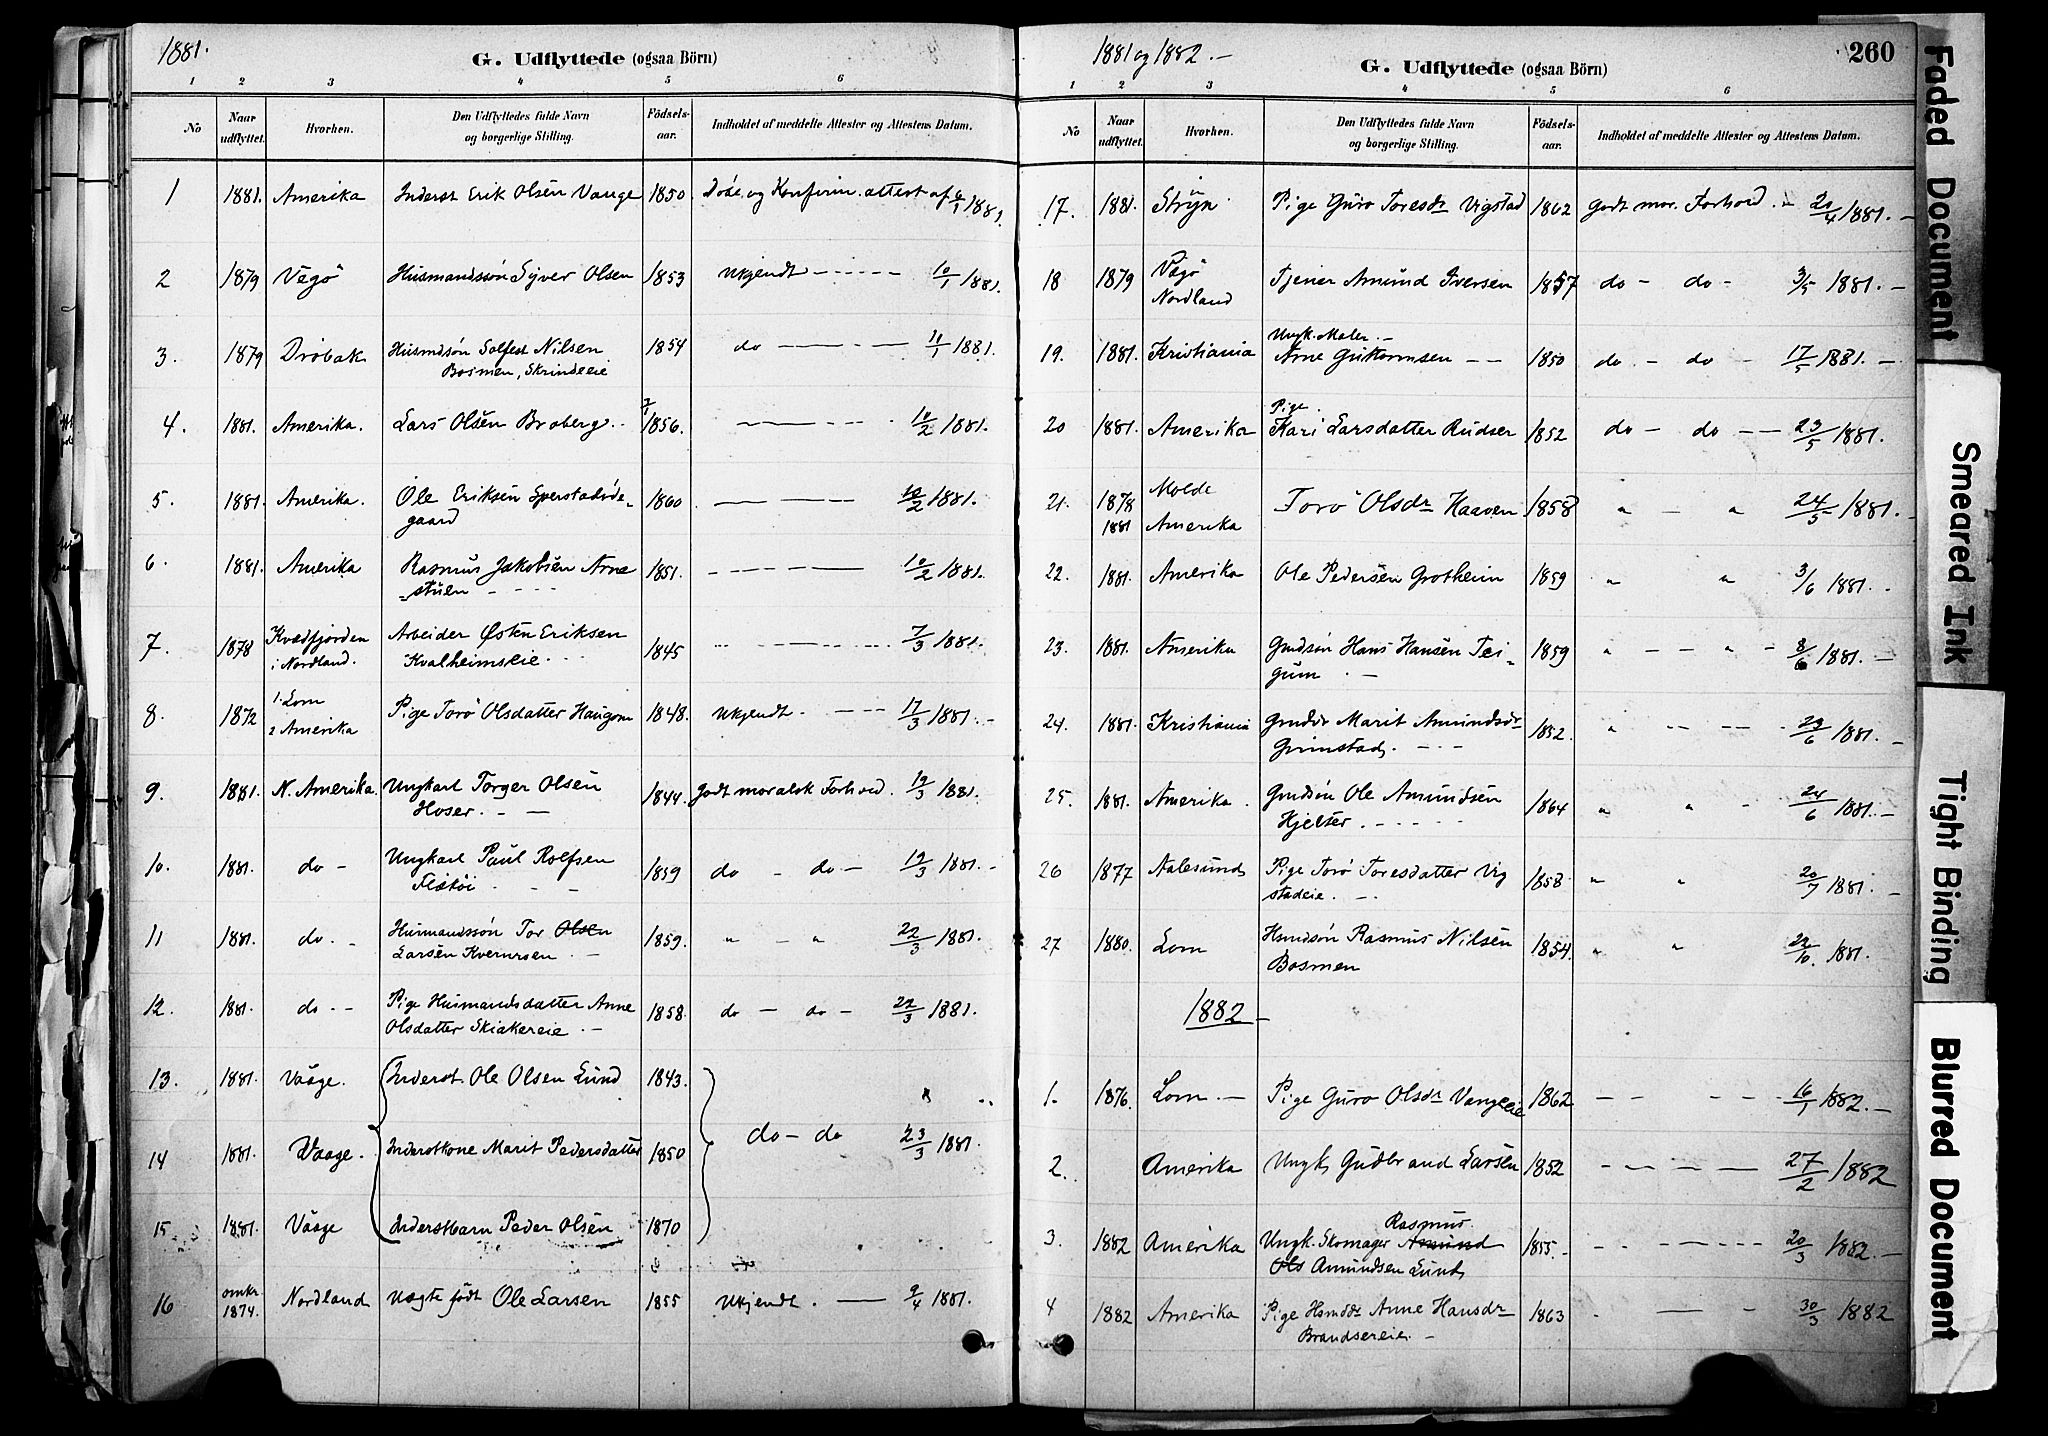 1881.
G. Udflyttede (ogsaa Börn)
1 2 3 4 5 6
No
Naar udflyttet.
Hvorhen.
Den Udflyttedes fulde Navn og borgerlige Stilling.
Födsels-aar.
Indholdet af meddelte Attester og Attestens Datum.
1 1881. Amerika Inderst Erik Olsen Vange 1850 Döbe og Konfirm. attest af 6/1 1881.
2 1879 Vegö Husmandssön Syver Olsen 1853 Ukjendt - - - - - 10/1 1881.
3. 1879 Dröbak Husmdsön Solfest Nilsen 1854 do — - — - — 11/1 1881.
Bosmen, Skrindeeie
4. 1881. Amerika. Lars Olsen Broberg. 1856. 10/2 1881.
5. 1881. Amerika. Ole Eriksen 1860 10/2 1881.
gaard
6. 1881. Amerika Rasmus Jakobsen Arne 1851. 10/2 1881.
-stuen - - - -
7. 1878 Kvædfjorden Arbeider Østen Eriksen 1845 7/3 1881.
i Nordland. Kvalheimseie
8. 1872 1. Lom Pige Torö Olsdatter Haugom 1848. Ukjendt. - - - - 17/3 1881. -
2 Amerika
9. 1881. N. Amerika. Ungkarl Torger Olsen 1844. godt moralsk Forhold. 19/3 1881.
Hoser. - —
10. 1881. do - Ungkarl Paul Rolfsen 1859 do - do - 19/3 1881. -
Flåtöi - - -
11 1881. do. - Husmandssön Tor Olsen 1859. " - " 22/3 1881.
Larsen -
12. 1881. do - - Pige Husmandsdatter Anne 1858. do — do - 22/3 1881.
Olsdatter Skiakereie -
13. 1881. Vaage. Inderst. Ole Olsen Lund 1843.
14 1881. Vaage. Inderstkone Marit Pedersdatter 1850 do - do 23/3 1881.
15 1881. Vaage Inderstbarn Peder Olsen 1870
16 omkr. 1874. Nordland Uægte födt Ole Larsen 1855 Ukjendt. — 9/4 1881.
1881 og 1882. -
260
G. Udflyttede (ogsaa Börn)
1 2 3 4 5 6
No
Naar udflyttet.
Hvorhen.
Den Udflyttedes fulde Navn og borgerlige Stilling.
Födsels-aar.
Indholdet af meddelte Attester og Attestens Datum.
17. 1881. Stryn Pige Guro Toresdr Vigstad 1862 godt mor. Forhold. - 20/4 1881. -
18 1879 Vegö Tjener Amund Iversen 1857 do - do - 3/5 1881. -
Nordland
19. 1881. Kristiania Ungk. Maler - 1850 do - do - 17/5 1881. -
Arne Guttormsen - -
20 1881. Amerika Pige. 1852 do - do - - 23/5 1881.
Kari Larsdatter Rudser
21. 1878 Molde Torö Olsdr Haaven 1858 " - " 24/5 1881.
1881 Amerika
22. 1881. Amerika Ole Pedersen Grotheim 1859 " " 3/6 1881.
23. 1881. Amerika Gmdsön Hans Hansen Tei- 1859 " - - " - 8/6 1881. -
gum -
24. 1881. Kristiania Gmddr Marit Amundsdr 1852. " 23/6 1881. -
Grimstad. - - -
25. 1881. Amerika. Gmdsön Ole Amundsen 1864 " " - 24/6 1881. -
Hjelter. - - - -
26 1877 Aalesund Pige Torö Toresdatter Vig 1858. " " 20/7 1881. -
stadeie. - -
27 1880. Lom Hsmdsön Rasmus Nilsen 1854. " " 22/10. 1881.
Bosmen
1882 -
1. 1876. Lom. - Pige Guro Olsdr Vangeeie 1862 - - - - - 16/1 1882. -
2. Amerika Ungk. Gudbrand Larsen 1852 - - - - 27/2 1882
3. 1882 Amerika Ungk. Skomager Amund Rasmus 1855. - 20/3 1882. -
Ols Amundsen Lund
4 1882 Amerika Pige Hsmddr Anne Hansdr 1863 - — - 30/3 1882
Brandsereie. -
Faded Document
Smeared Ink
Tight Binding
Blurred Document